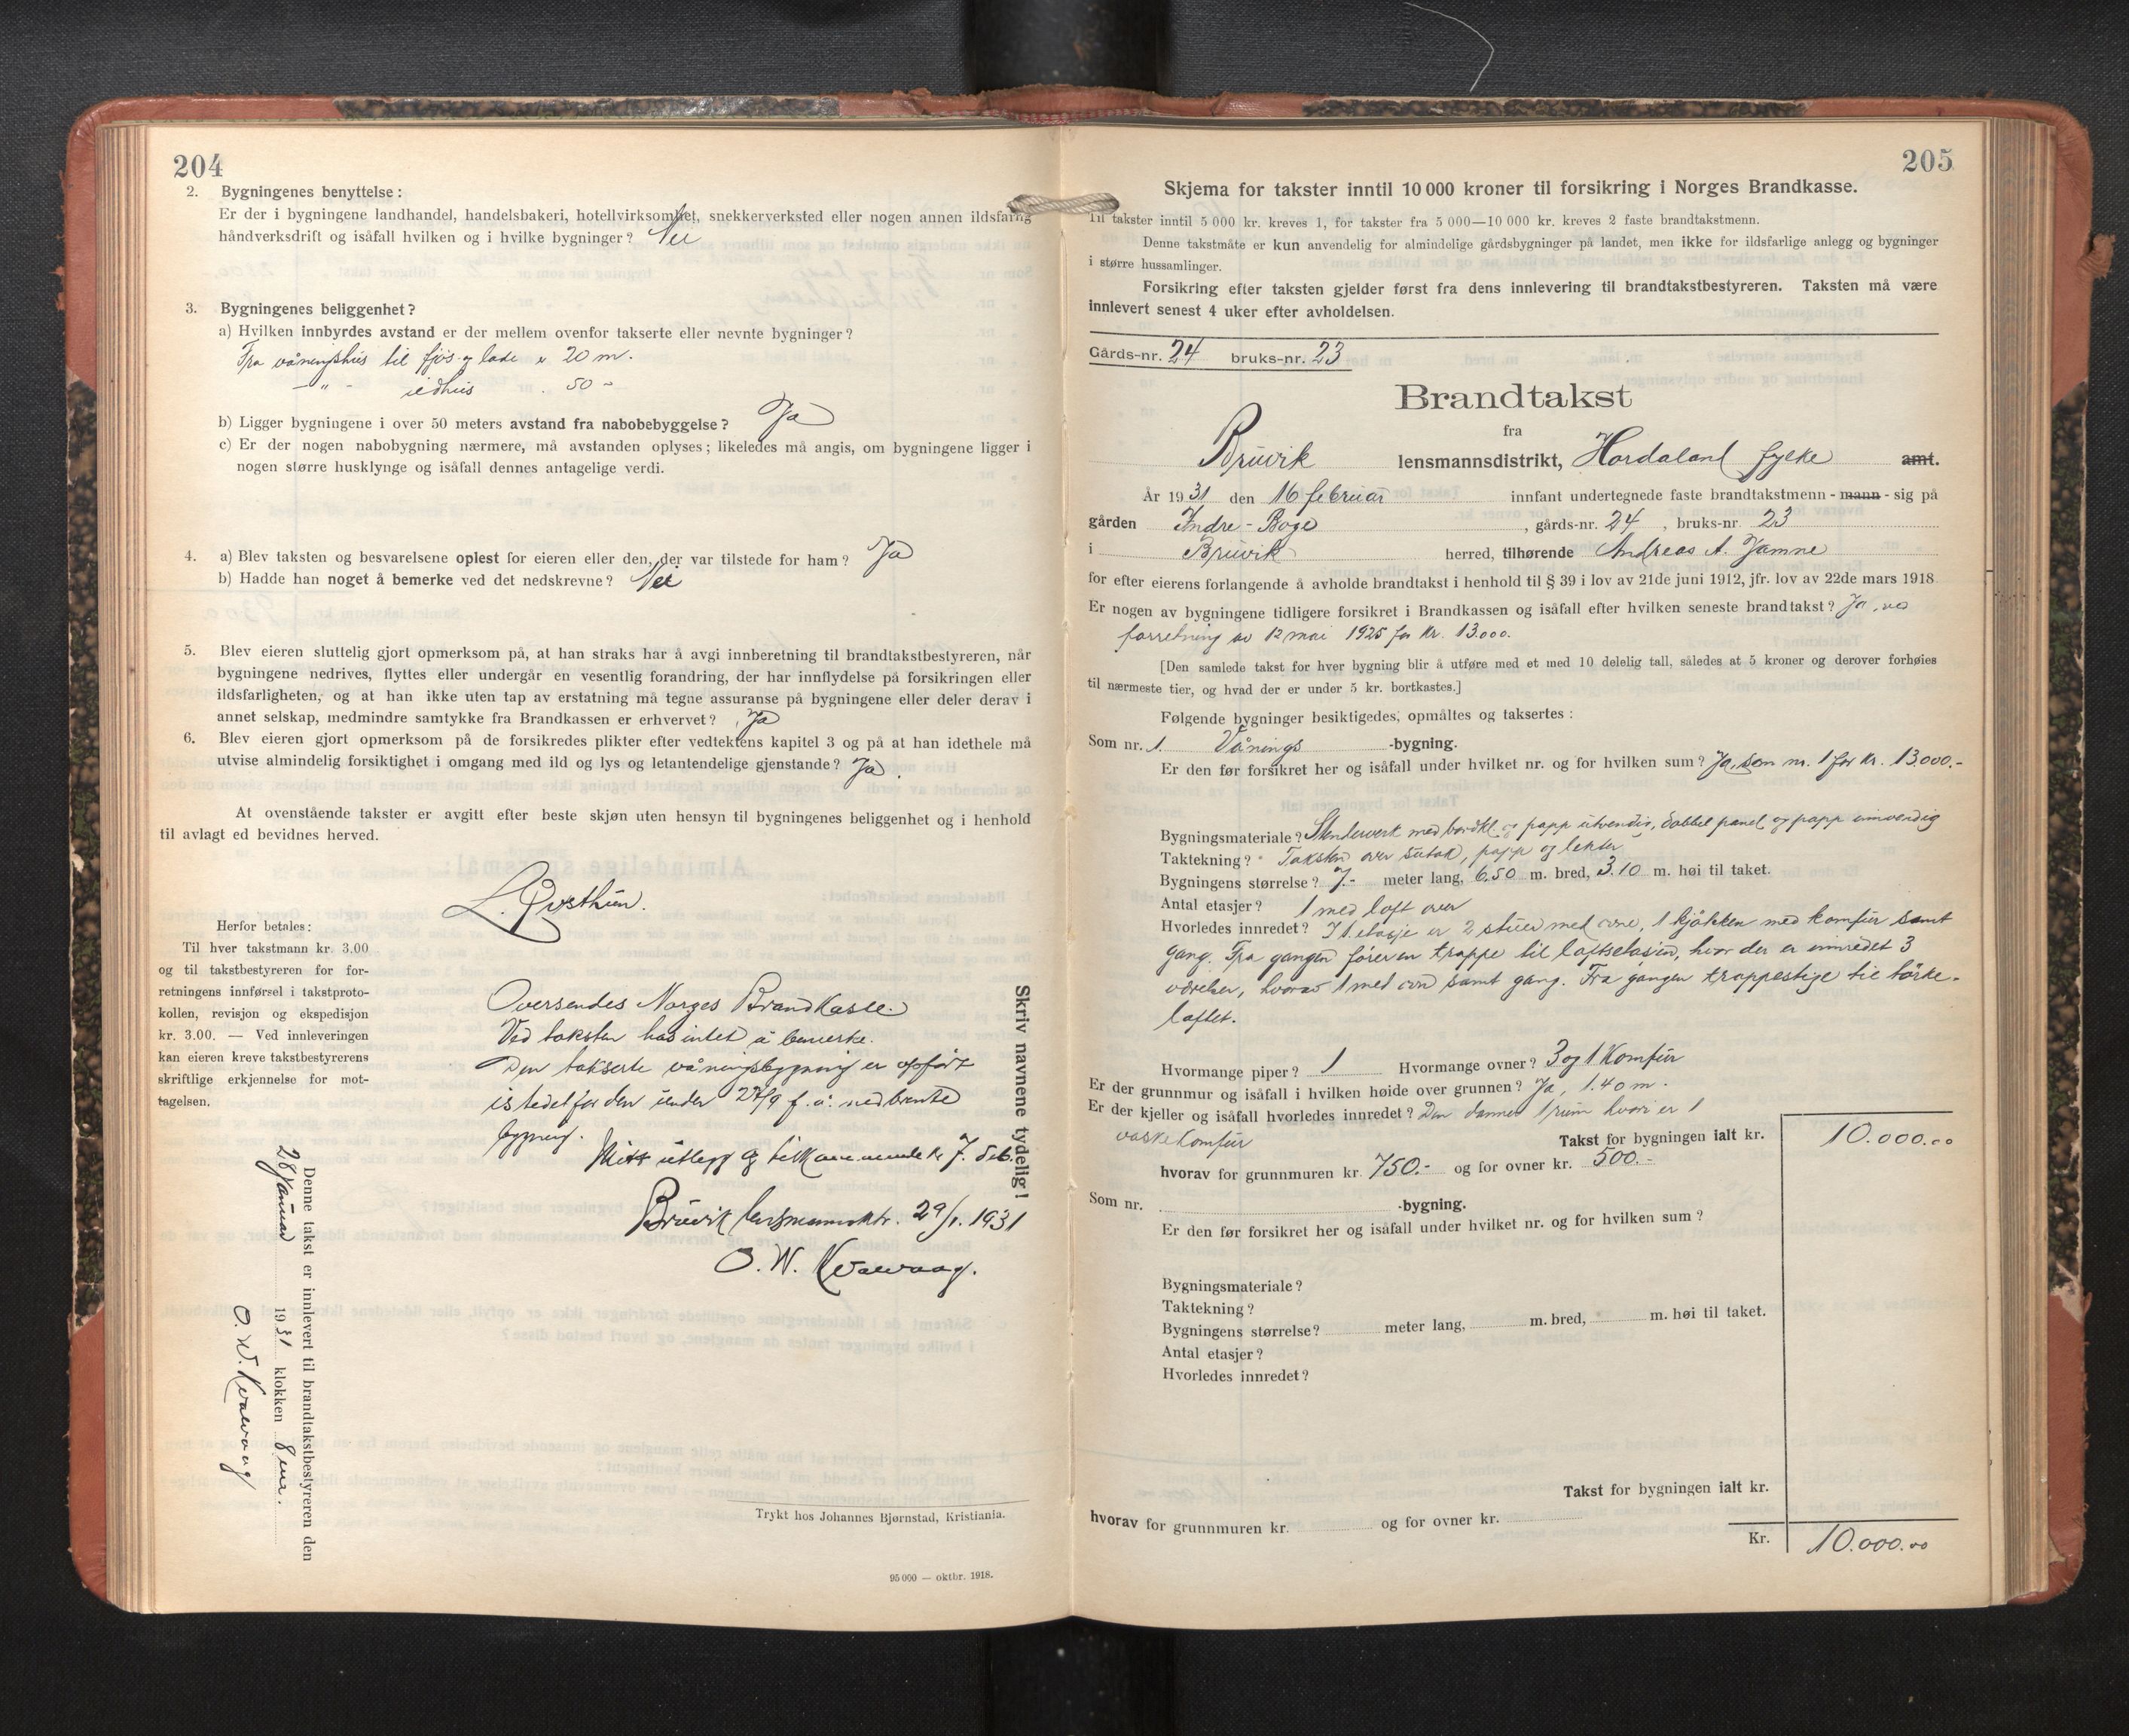 204
2. Bygningenes benyttelse:
Er der i bygningene landhandel, handelsbakeri, hotellvirksomhet, snekkerverksted eller nogen annen ildsfarlig
håndverksdrift og isåfall hvilken og i hvilke bygninger? Nei
3. Bygningenes beliggenhet?
a) Hvilken innbyrdes avstand er der mellem ovenfor takserte eller nevnte bygninger?
Fra våningshus til fjøs og lade er 20 m.
— " — uthus . 50 -
b) Ligger bygningene i over 50 meters avstand fra nabobebyggelse? Ja
c) Er der nogen nabobygning nærmere, må avstanden oplyses; likeledes må angis, om bygningene ligger i
nogen større husklynge og isåfall dennes antagelige verdi.
4. a) Blev taksten og besvarelsene oplest for eieren eller den, der var tilstede for ham? Ja
b) Hadde han noget å bemerke ved det nedskrevne? Nei
5. Blev eieren sluttelig gjort opmerksom på, at han straks har å avgi innberetning til brandtakstbestyreren, når
bygningene nedrives, flyttes eller undergår en vesentlig forandring, der har innflydelse på forsikringen eller
ildsfarligheten, og at han ikke uten tap av erstatning må tegne assuranse på bygningene eller deler derav i
annet selskap, medmindre samtykke fra Brandkassen er erhvervet? Ja
6. Blev eieren gjort opmerksom på de forsikredes plikter efter vedtektens kapitel 3 og på at han idethele må
utvise almindelig forsiktighet i omgang med ild og lys og letantendelige gjenstande? Ja.
At ovenstående takster er avgitt efter beste skjøn uten hensyn til bygningenes beliggenhet og i henhold
til avlagt ed bevidnes herved.
Herfor betales:
Til hver takstmann kr. 3.00
og til takstbestyreren for for-
retningens innførsel i takstproto-
kollen, revisjon og ekspedisjon
kr. 3.00. — Ved innleveringen
kan eieren kreve takstbestyrerens
skriftlige erkjennelse for mot-
tagelsen.
Oversendes Norges Brandkasse.
Ved taksten has intet å bemerke.
Den takserte våningsbygning er opført
istedetfor den under 27/9 f. å. nedbrente
bygning.
Mitt utlegg og tilkommende kr 7.
Bruvik lensmannsktr. 29/1. 1931
O. W. Kvalvaag.
Skriv navnene tydelig!
Denne takst er innlevert til brandtakstbestyreren den
28 Januar 1931 klokken 8 em.
O. W. Kvalvaag
Trykt hos Johannes Bjørnstad, Kristiania.
95 000 — oktbr. 1918.
205
Skjema for takster inntil 10 000 kroner til forsikring i Norges Brandkasse.
Til takster inntil 5 000 kr. kreves 1, for takster fra 5 000—10 000 kr. kreves 2 faste brandtakstmenn.
Denne takstmåte er kun anvendelig for almindelige gårdsbygninger på landet, men ikke for ildsfarlige anlegg og bygninger
i større hussamlinger.
Forsikring efter taksten gjelder først fra dens innlevering til brandtakstbestyreren. Taksten må være
innlevert senest 4 uker efter avholdelsen.
Gårds-nr. 24 bruks-nr. 23
Brandtakst
fra
Bruvik lensmannsdistrikt, Hordaland fylke amt.
År 1931 den 16 februar innfant undertegnede faste brandtakstmenn - mann - sig på
gården Indre-Boge, gårds-nr. 24, bruks-nr. 23
i Bruvik herred, tilhørende Andreas A. Jamne
for efter eierens forlangende å avholde brandtakst i henhold til § 39 i lov av 21de juni 1912, jfr. lov av 22de mars 1918
Er nogen av bygningene tidligere forsikret i Brandkassen og isåfall efter hvilken seneste brandtakst? Ja, ved
forretning av 12 mai 1925 for kr. 13.000.
[Den samlede takst for hver bygning blir å utføre med et med 10 delelig tall, således at 5 kroner og derover forhøies
til nærmeste tier, og hvad der er under 5 kr. bortkastes.]
Følgende bygninger besiktigedes, opmåltes og taksertes:
Som nr. 1. Vånings -bygning.
Er den før forsikret her og isåfall under hvilket nr. og for hvilken sum? Ja, som nr. 1 for kr. 13.000.-
Bygningsmateriale? Stenderverk med bordkl. og papp utvendig, dobbel panel og papp innvendig
Taktekning? Taksten over sutak, papp og lekter
Bygningens størrelse? 7.- meter lang, 6.50 m. bred, 3.10 m. høi til taket.
Antal etasjer? 1 med loft over
Hvorledes innredet? I 1 etasje er 2 stuer med ovne, 1 kjøkken med komfur samt
gang. Fra gangen fører en trappe til loftsetasjen, hvor der er innredet 3
værelser, hvorav 1 med ovn samt gang. Fra gangen trappestige til tørke-
loftet.
Hvormange piper? 1 Hvormange ovner? 3 og 1 Komfur
Er der grunnmur og isåfall i hvilken høide over grunnen? Ja, 1.40 m.
Er der kjeller og isåfall hvorledes innredet? Den danner 1 rum hvori er 1
vaskekomfur
Takst for bygningen ialt kr. 10.000.00
hvorav for grunnmuren kr. 750.- og for ovner kr. 500.-
Som nr. -bygning.
Er den før forsikret her og isåfall under hvilket nr. og for hvilken sum?
Bygningsmateriale?
Taktekning?
Bygningens størrelse? meter lang, m. bred, m. høi til taket.
Antal etasjer?
Hvorledes innredet?
Takst for bygningen ialt kr.
hvorav for grunnmuren kr. og for ovner kr.
Kr. 10.000.00